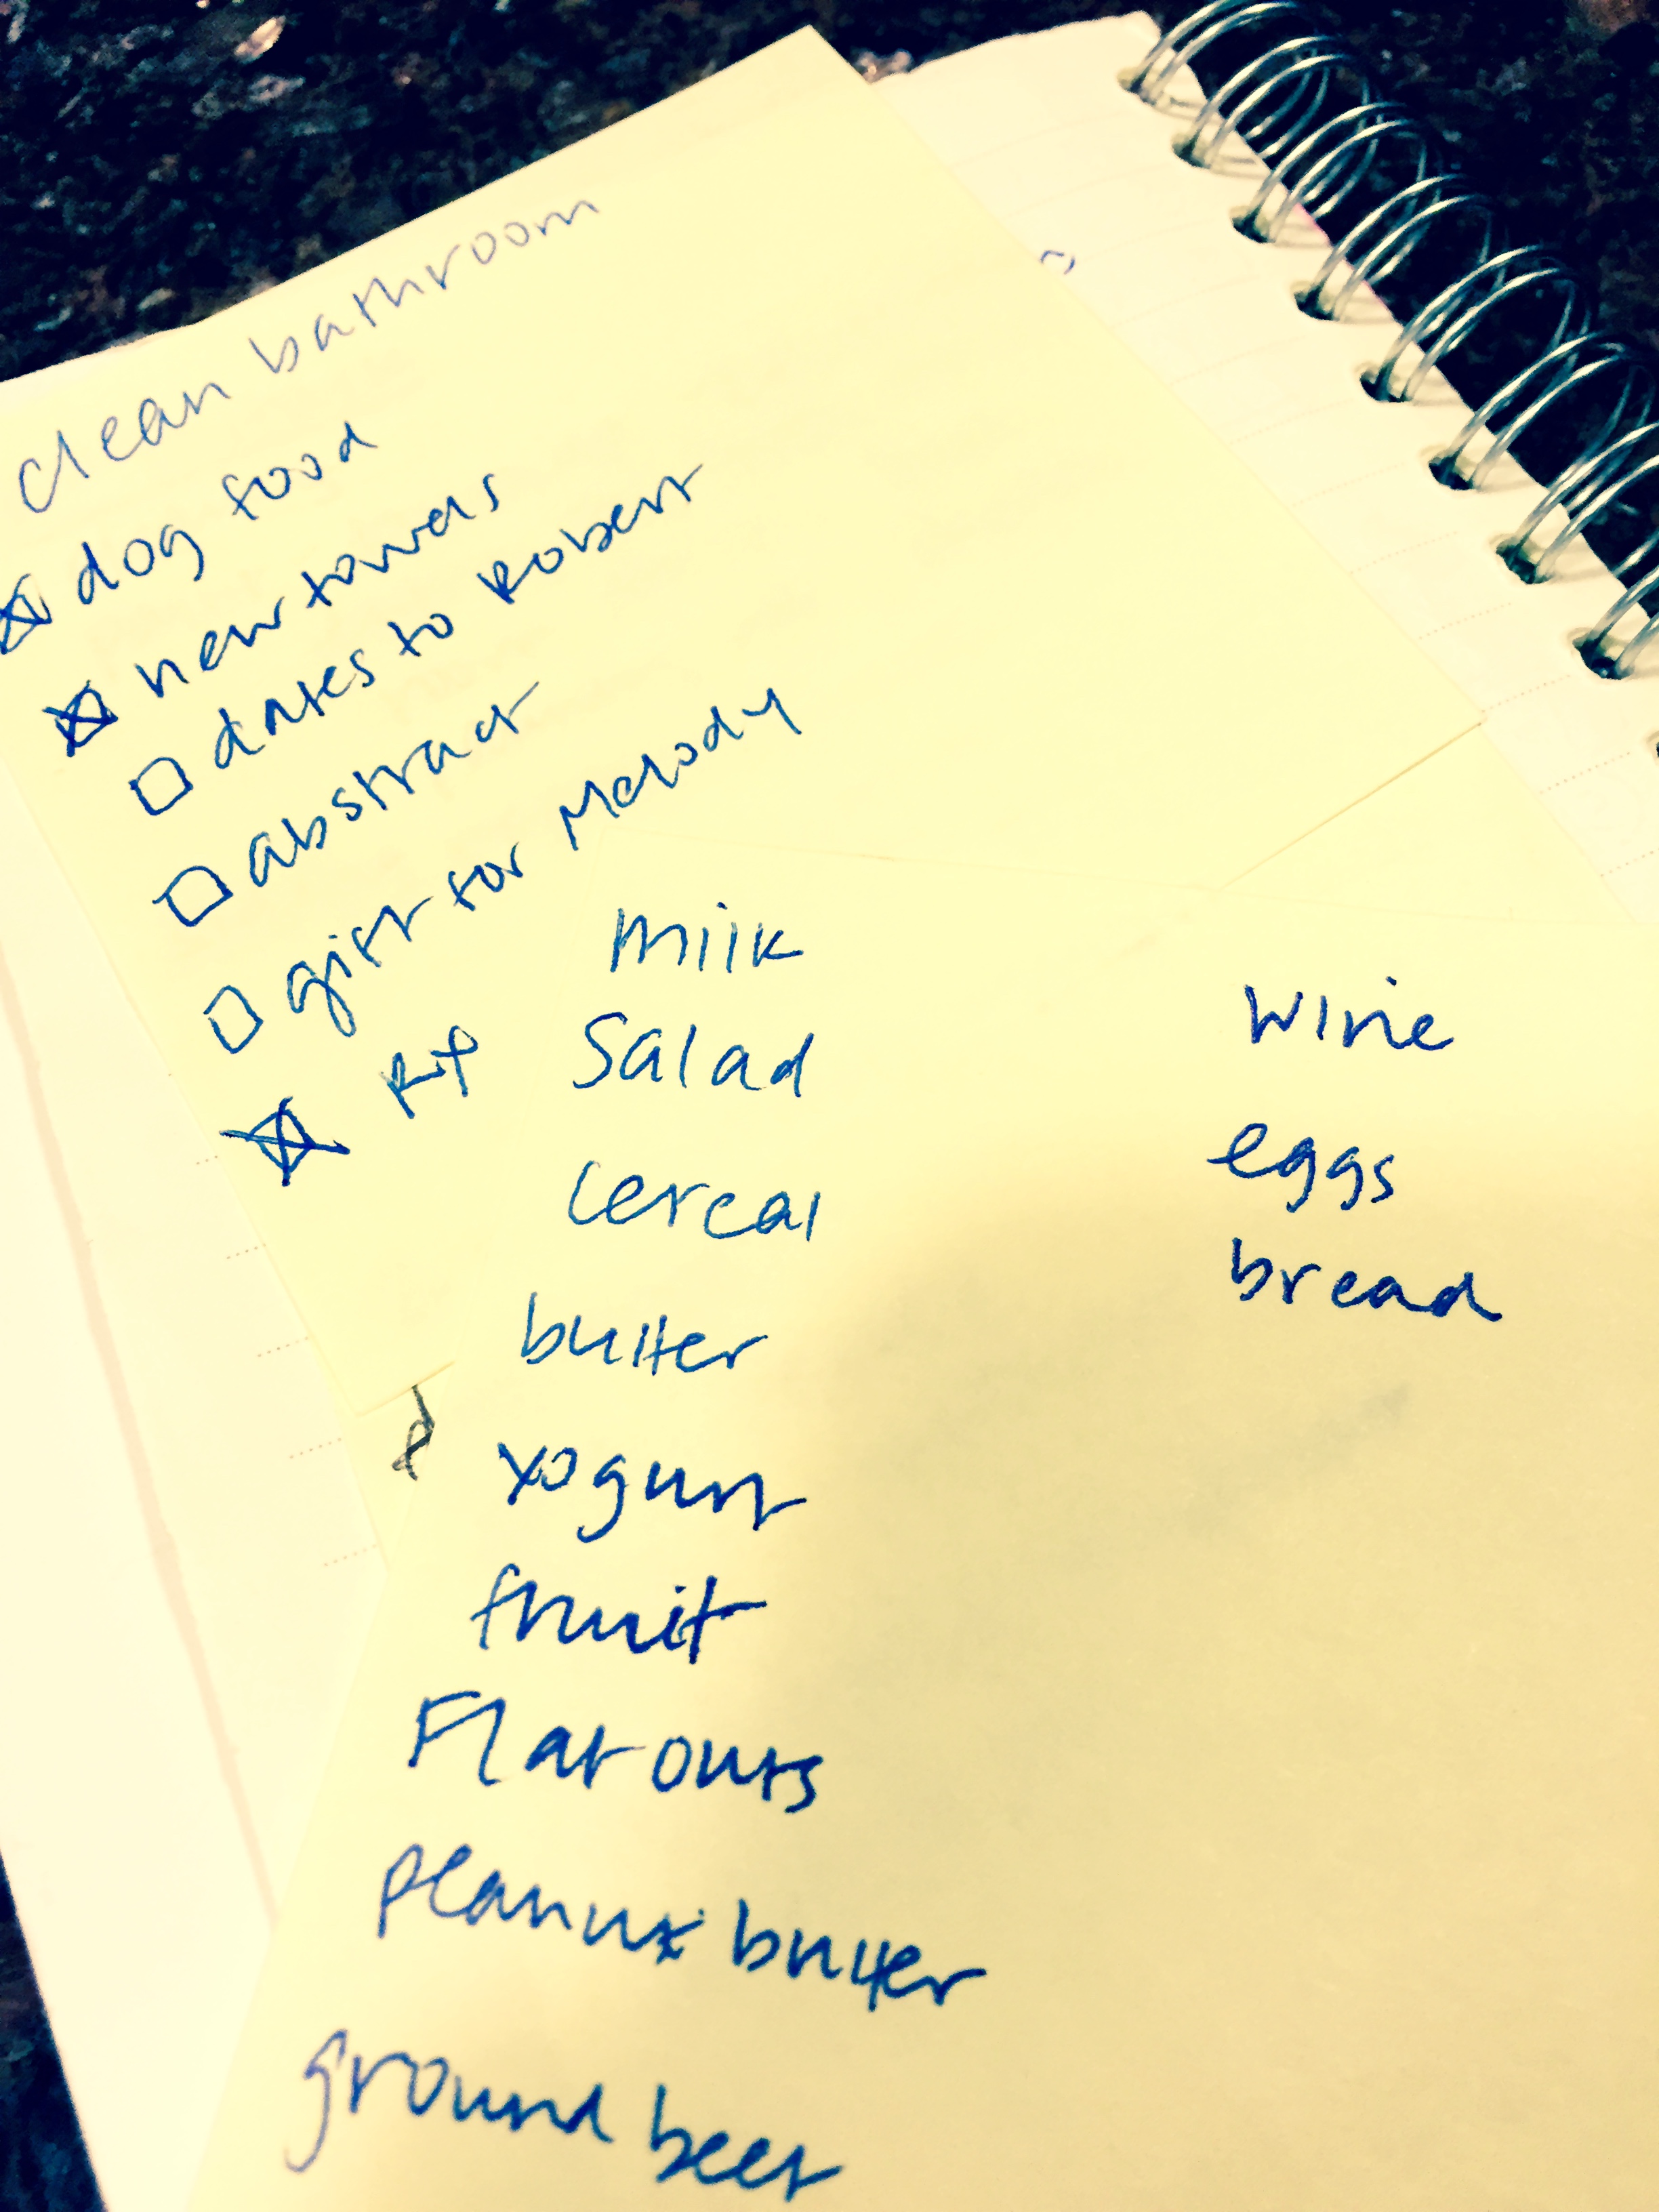 clean bathroom
dog food
new towels
dates to Robert
abstract
gift for Melody
Rx
milk
salad
cereal
butter
yogurt
fruit
Flat outs
peanut butter
ground beef
wine
eggs
bread